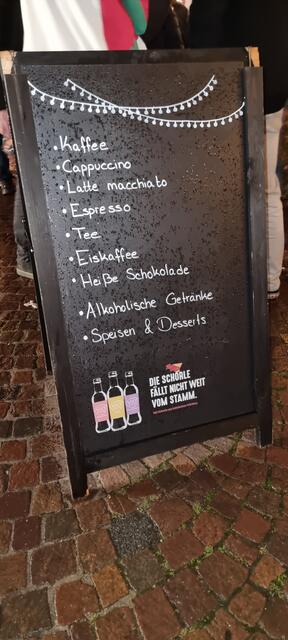 • Kaffee
• Cappuccino
• Latte macchiato
• Espresso
• Tee
• Eiskaffee
• Heiße Schokolade
• Alkoholische Getränke
• Speisen & Desserts
DIE SCHORLE
FÄLLT NICHT WEIT
VOM STAMM.